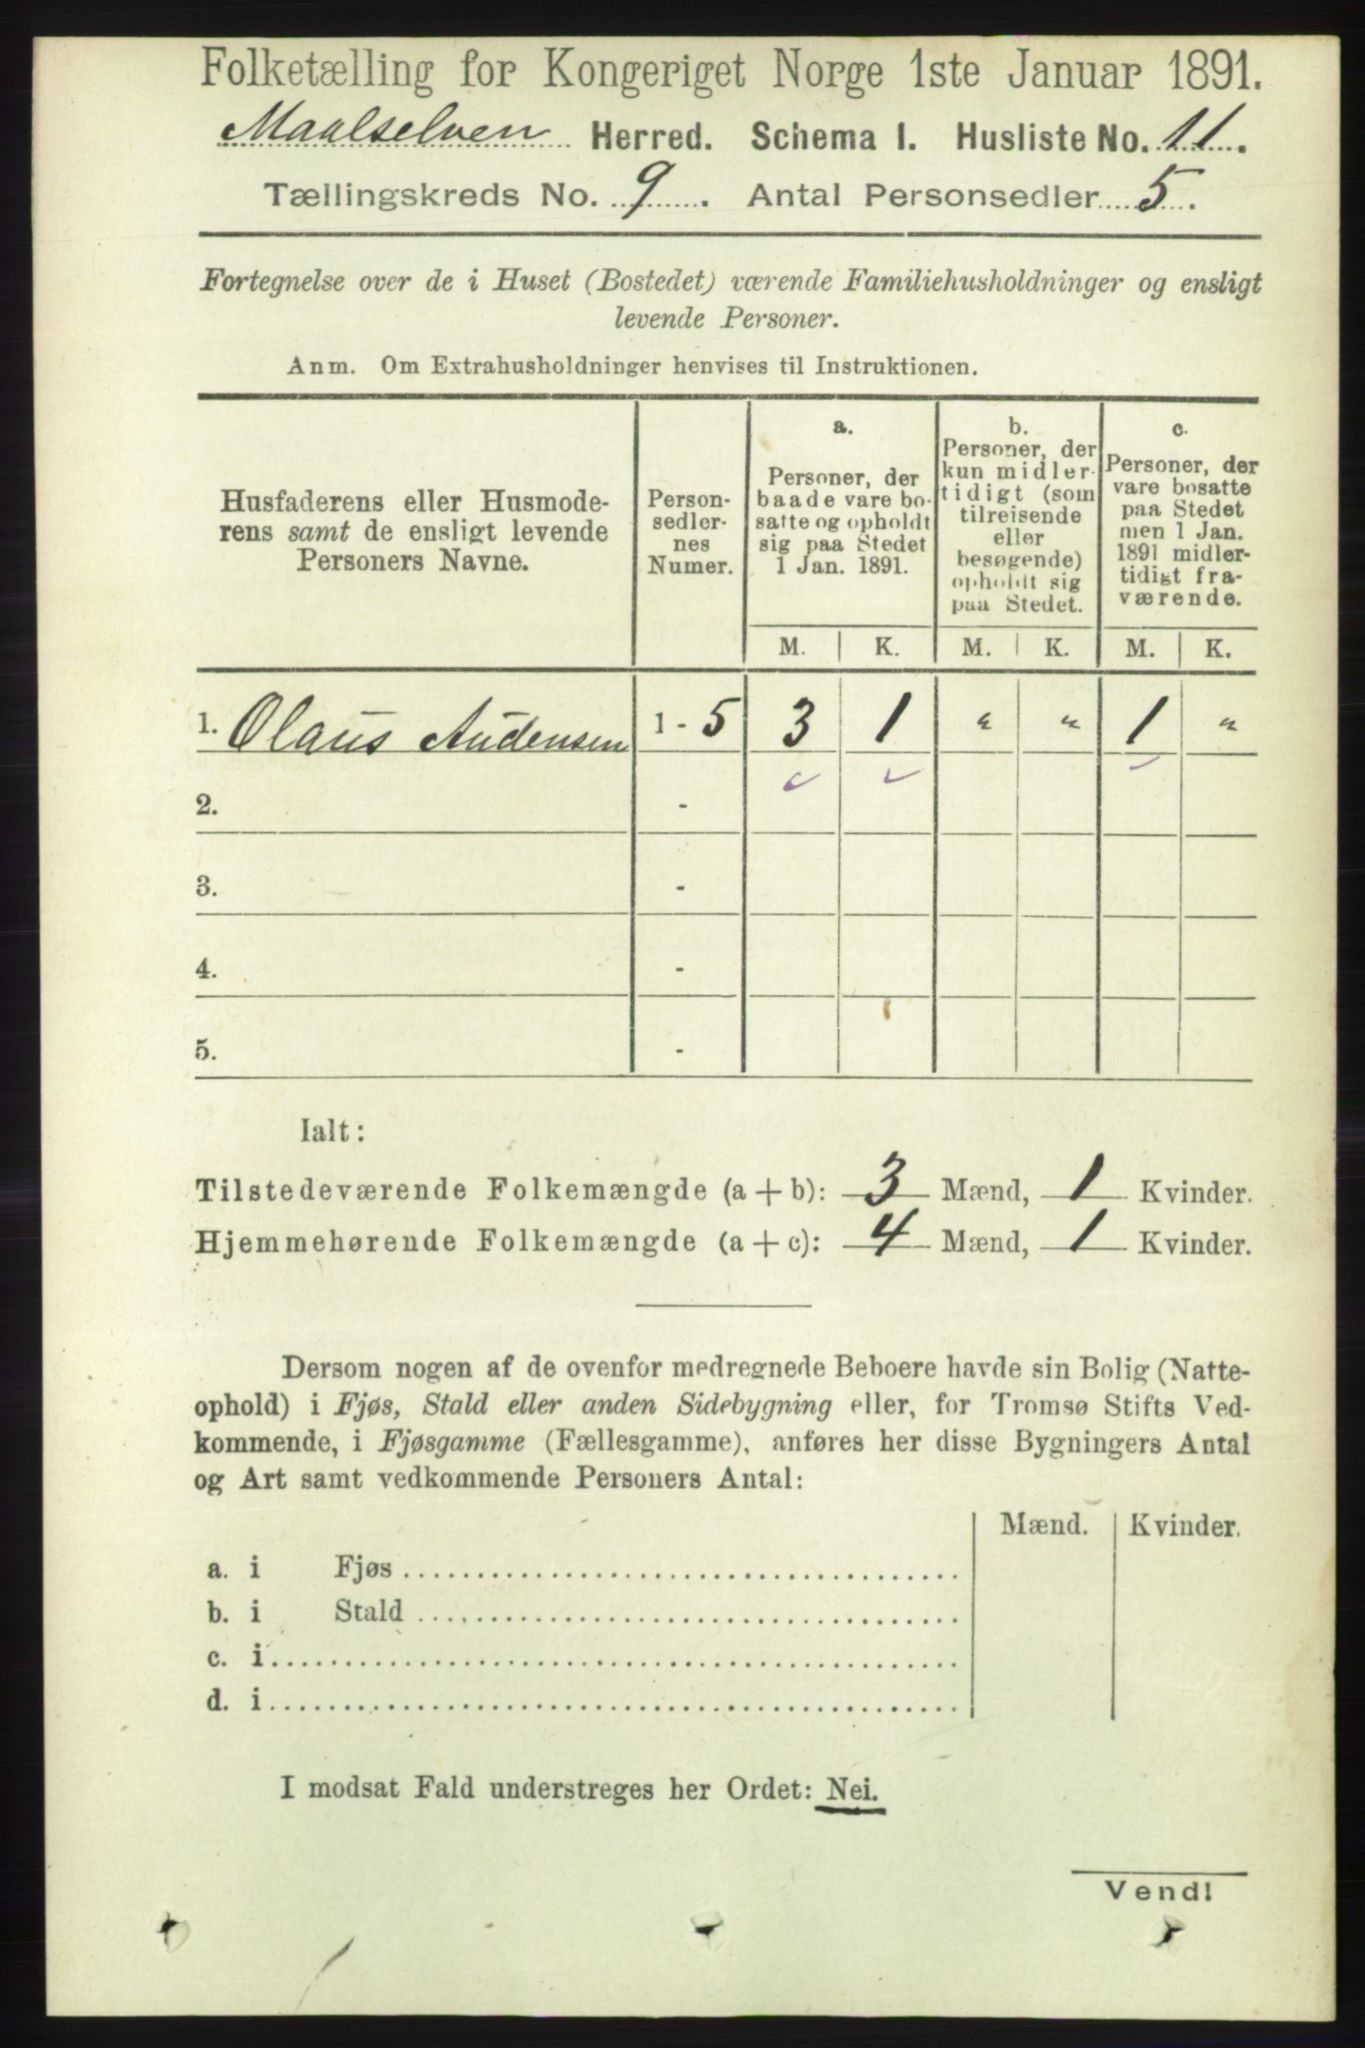 Folketælling for Kongeriget Norge 1ste Januar 1891.
Maalselven Herred. Schema I. Husliste No. 11.
Tællingskreds No. 9. Antal Personsedler 5.
Fortegnelse over de i Huset (Bostedet) værende Familiehusholdninger og ensligt
levende Personer.
Anm. Om Extrahusholdninger henvises til Instruktionen.
Husfaderens eller Husmode-
rens samt de ensligt levende
Personers Navne.
Person-
sedler-
nes
Numer.
a.
Personer, der
baade vare bo-
satte og opholdt
sig paa Stedet
1 Jan. 1891.
b.
Personer, der
kun midler-
tidigt (som
tilreisende
eller
besøgende)
opholdt sig
paa Stedet.
c.
Personer, der
vare bosatte
paa Stedet
men 1 Jan.
1891 midler-
tidigt fra-
værende.
M. K. M. K. M. K.
1. Olaus Audensen 1 - 5 3 1 " " 1 "
2. -
3. -
4. -
5. -
Ialt:
Tilstedeværende Folkemængde (a + b): 3 Mænd, 1 Kvinder.
Hjemmehørende Folkemængde (a + c): 4 Mænd, 1 Kvinder.
Dersom nogen af de ovenfor medregnede Beboere havde sin Bolig (Natte-
ophold) i Fjøs, Stald eller anden Sidebygning eller, for Tromsø Stifts Ved-
kommende, i Fjøsgamme (Fællesgamme), anføres her disse Bygningers Antal
og Art samt vedkommende Personers Antal:
Mænd. Kvinder.
a. i Fjøs
b. i Stald
c. i
d. i
I modsat Fald understreges her Ordet: Nei.
Vend!